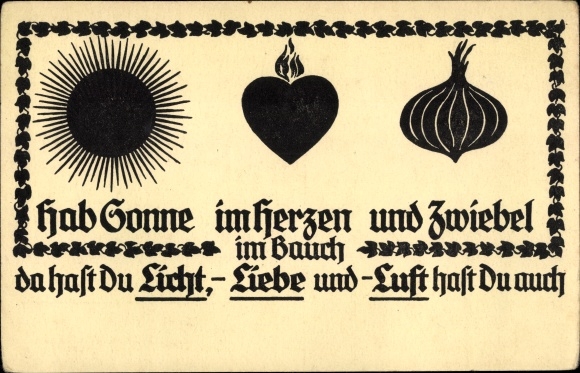 hab Sonne im Herzen und Zwiebel
im Bauch
da haſt Du Licht,- Liebe und - Luft haſt Du auch